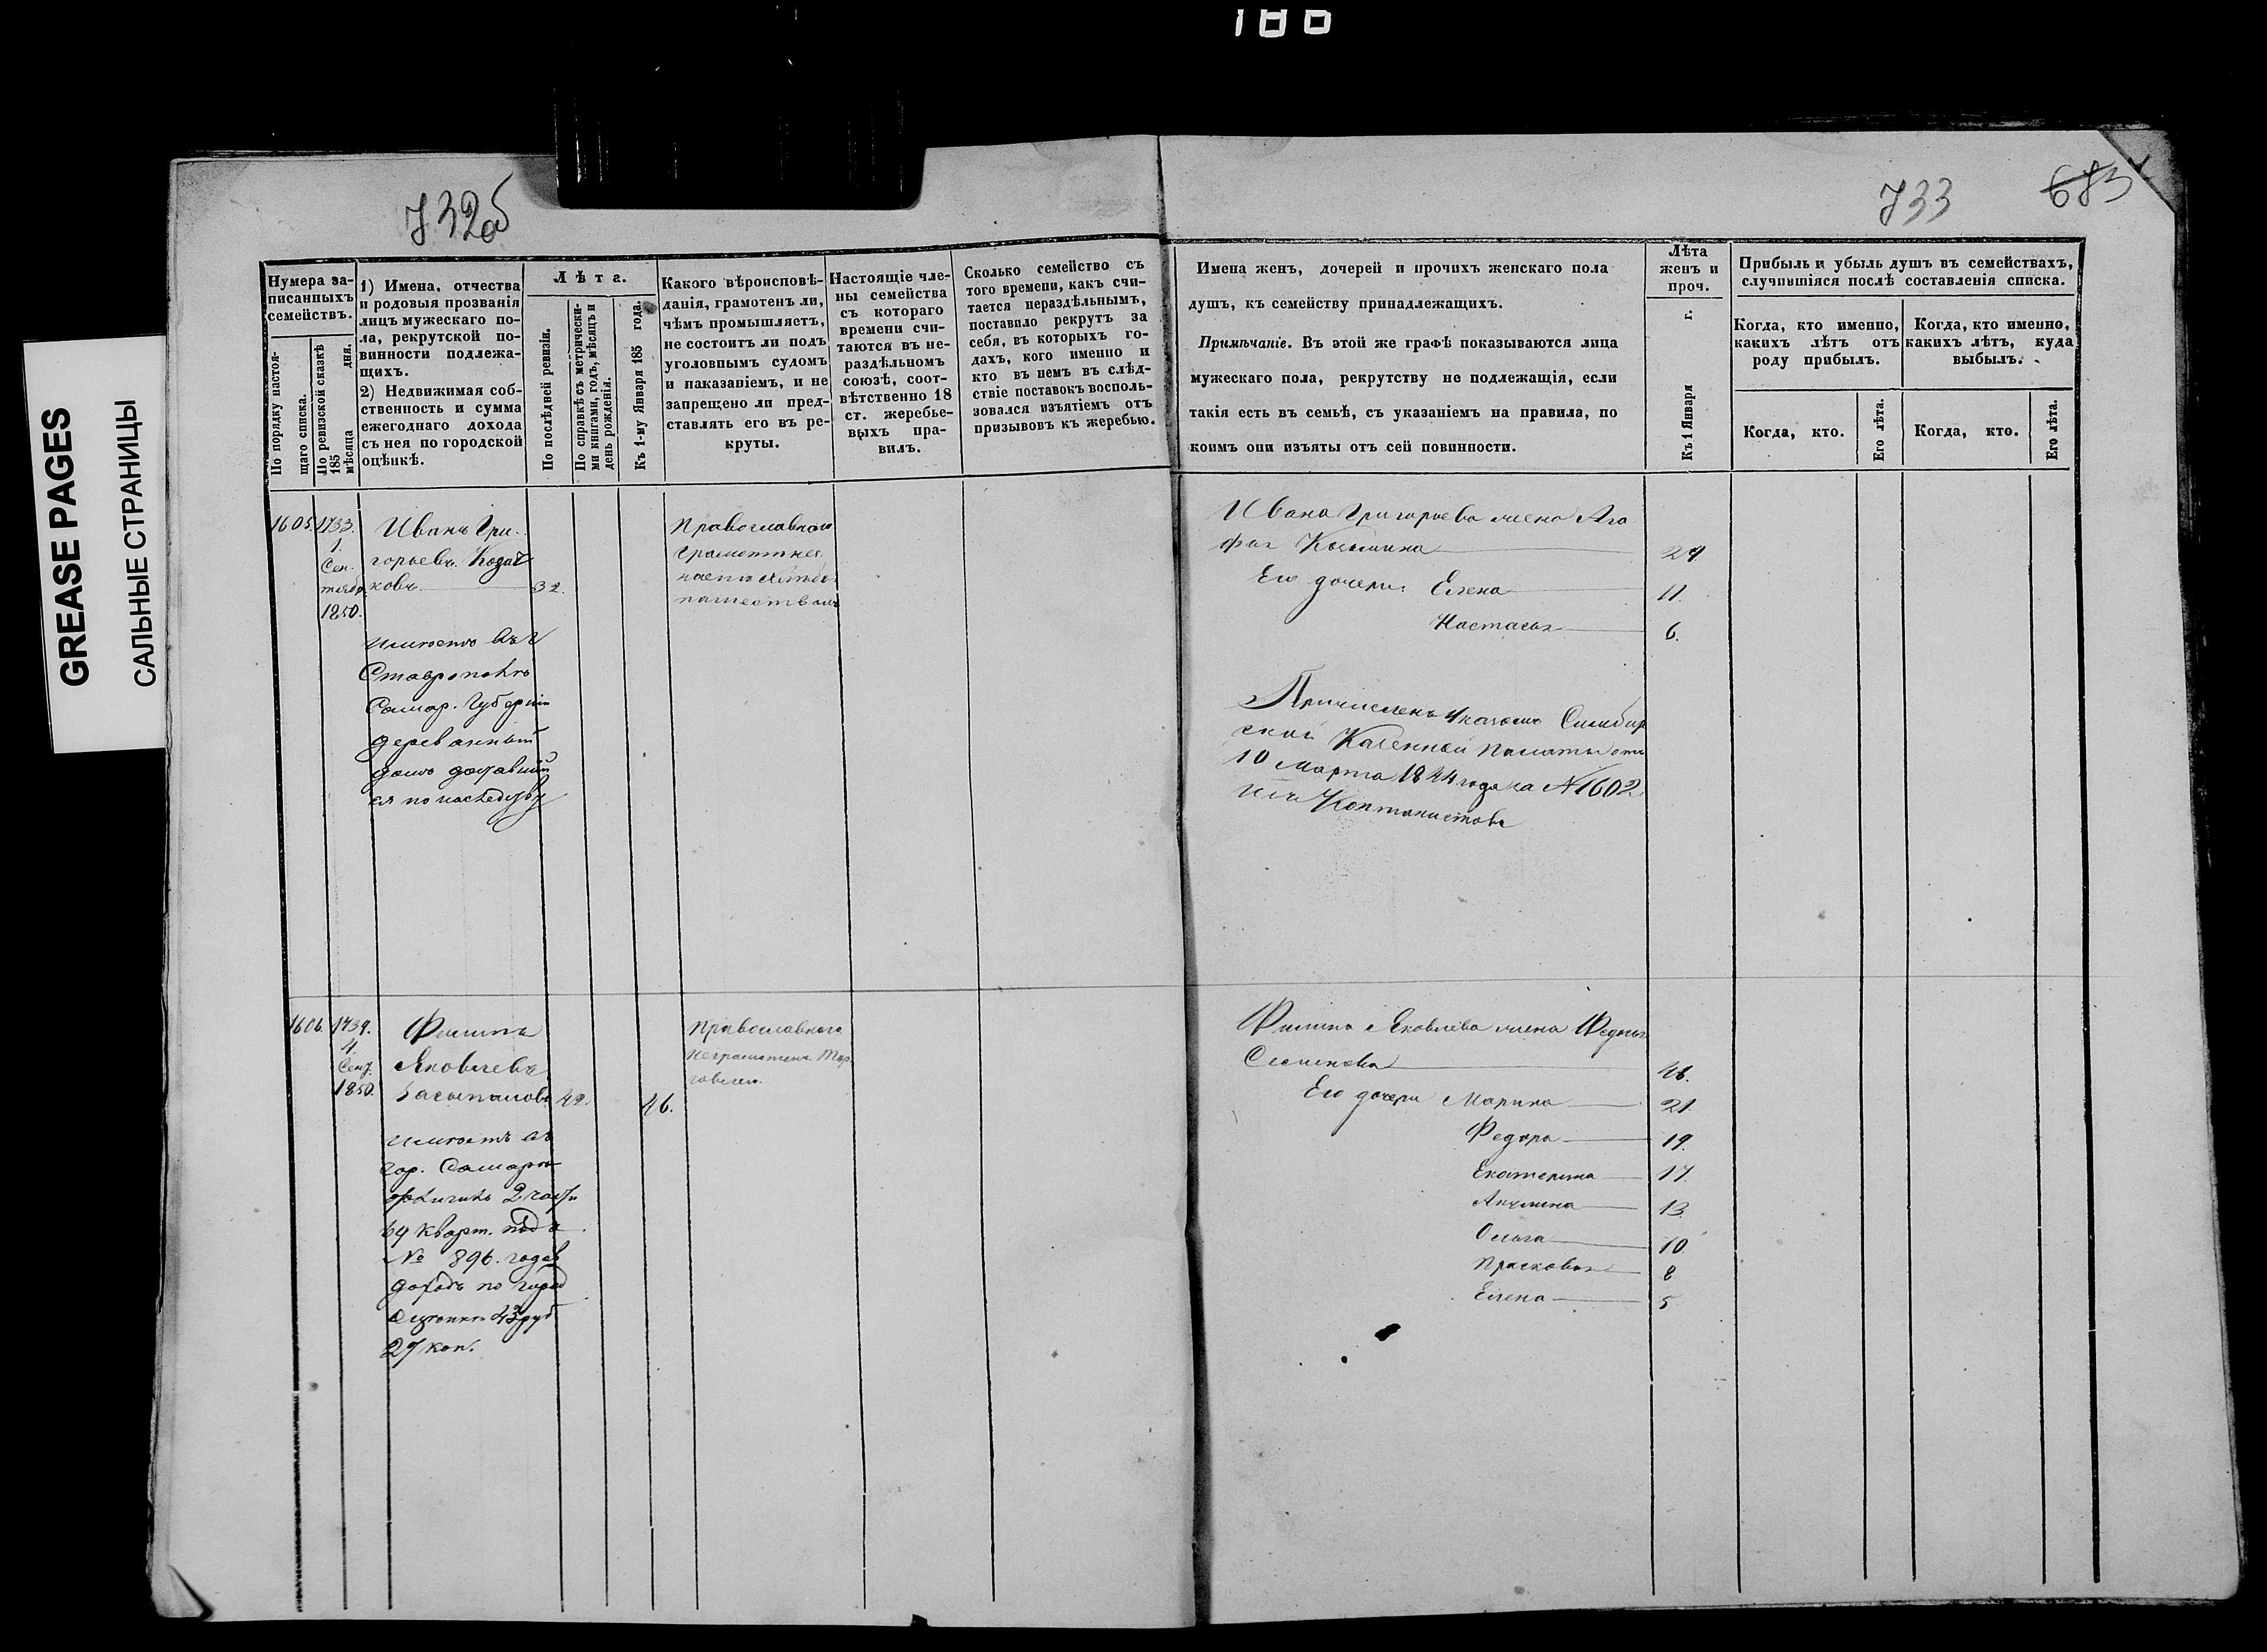 188
GREASE PAGES
САЛЬНЫЕ СТРАНИЦЫ
732об
733
683
Нумера за-
писанныхъ
семействъ.
По порядку настоя-
щаго списка.
По ревизской сказкѣ
185 мѣсяца дня.
1) Имена, отчества
и родовыя прозванія
лицъ мужескаго по-
ла, рекрутской по-
винности подлежа-
щихъ.
2) Недвижимая соб-
ственность и сумма
ежегоднаго дохода
съ нея по городской
оцѣнкѣ.
Лѣта.
По послѣдней ревизіи.
По справкѣ съ метрически-
ми книгами, годъ, мѣсяцъ и
день рожденія.
Къ 1-му Января 185 года.
Какого вѣроисповѣ-
данія, грамотенъ ли,
чѣмъ промышляетъ,
не состоитъ ли подъ
уголовнымъ судомъ
и наказаніемъ, и не
запрещено ли пред-
ставлять его въ ре-
круты.
Настоящіе чле-
ны семейства
съ котораго
времени счи-
таются въ не-
раздѣльномъ
союзѣ, соот-
вѣтственно 18
ст. жеребье-
выхъ пра-
вилъ.
Сколько семейство съ
того времени, какъ счи-
тается нераздѣльнымъ,
поставило рекрутъ за
себя, въ которыхъ го-
дахъ, кого именно и
кто въ немъ въ слѣд-
ствіе поставокъ восполь-
зовался изъятіемъ отъ
призывовъ къ жеребью.
Имена женъ, дочерей и прочихъ женскаго пола
душъ, къ семейству принадлежащихъ.
Примѣчаніе. Въ этой же графѣ показываются лица
мужескаго пола, рекрутству не подлежащія, если
такія есть въ семьѣ, съ указаніемъ на правила, по
коимъ они изъяты отъ сей повинности.
Лѣта
женъ и
проч.
Къ 1 Января г.
Прибыль и убыль душъ въ семействахъ,
случившіяся послѣ составленія списка.
Когда, кто именно,
какихъ лѣтъ отъ
роду прибылъ.
Когда, кто именно,
какихъ лѣтъ, куда
выбылъ.
Когда, кто.
Его лѣта.
Когда, кто.
Его лѣта.
1605.
1733.
1.
Сен.
тябр.
1850.
Иванъ Гри-
горьевъ Козач
ковъ 32.
имѣетъ въ г
Ставрополѣ
Самар. Губерніи
деревянный
домъ доставшій
ся по наследству
Православнаго
Ивана Григорьева жена Ага
фья Козьмина
Его дочери: Елена 11.
Настасья 6.
Причисленъ Указомъ Симбир
ской Казенной Палаты отъ
10 Марта 1844 года за №1602
изъ Кантонистовъ
1606.
1739.
4.
Сент.
1850.
Филипъ
Яковлевъ
Засыпаловъ 46.
имѣетъ въ
гор. Самарѣ
флигиль 2 части
64 кварт. подъ
№ 896. годов
доходъ по город
оценкѣ 43 руб
27 коп.
Православнаго
неграмотенъ Тор
говлею.
Филипа Яковлева жена Федосья
Семенова 46.
Его дочери Марина 21.
Федора 19.
Екатерина 17.
Акулина 13.
Ольга 10.
Прасковья 8
Елена 5